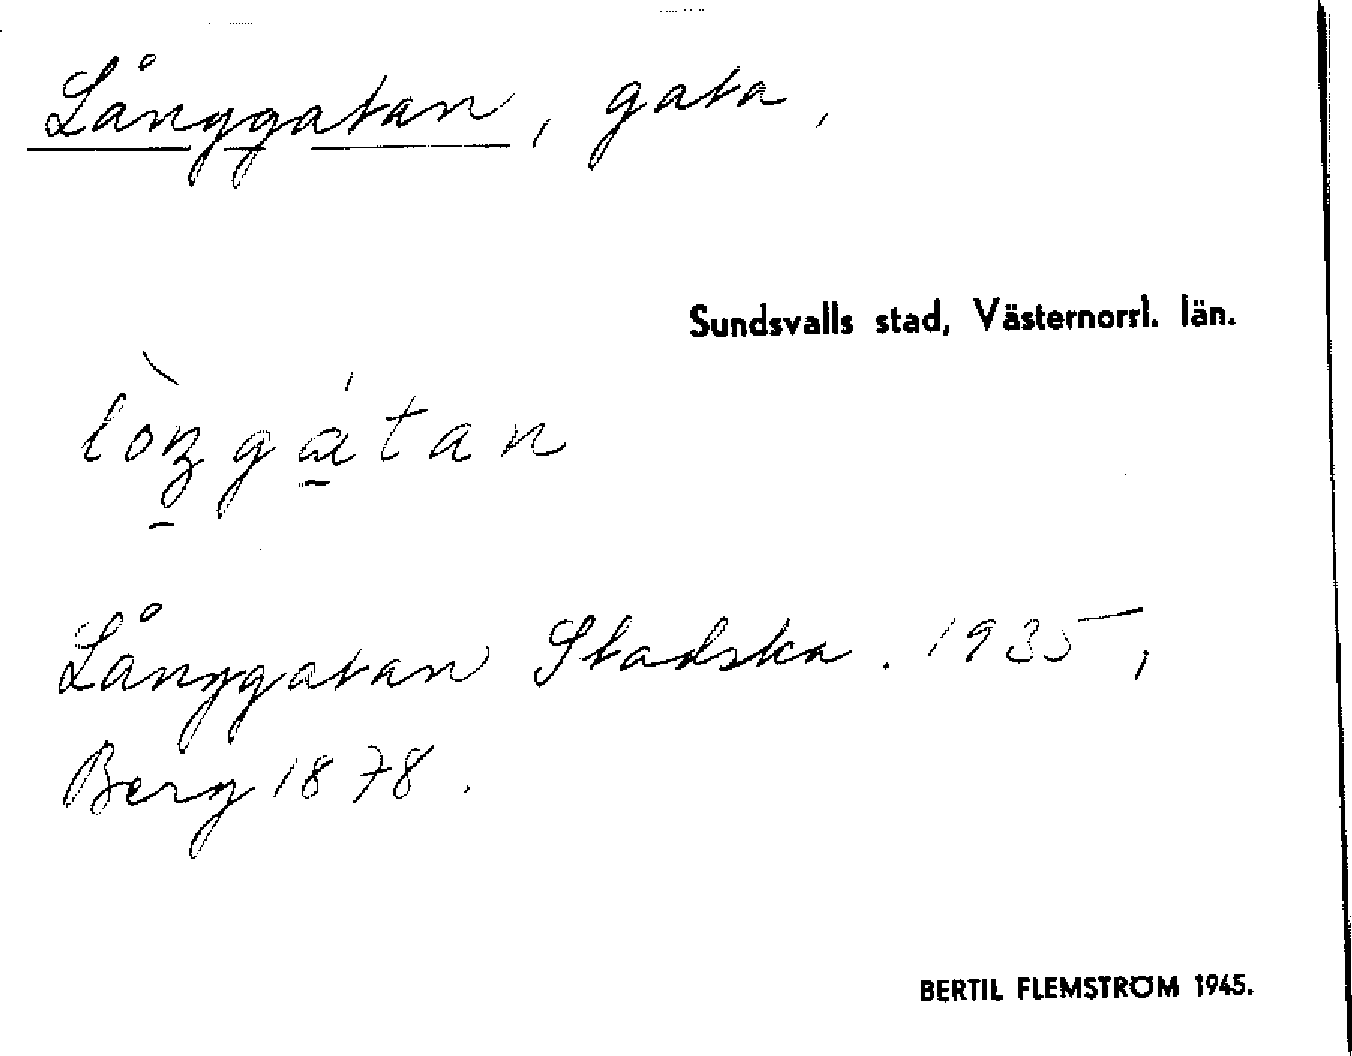 Långgatan, gata,
Sundsvalls stad, Västernorrl. län.
Långgatan Stadska. 1935,
Berg 1878.
BERTIL FLEMSTRÖM 1945.